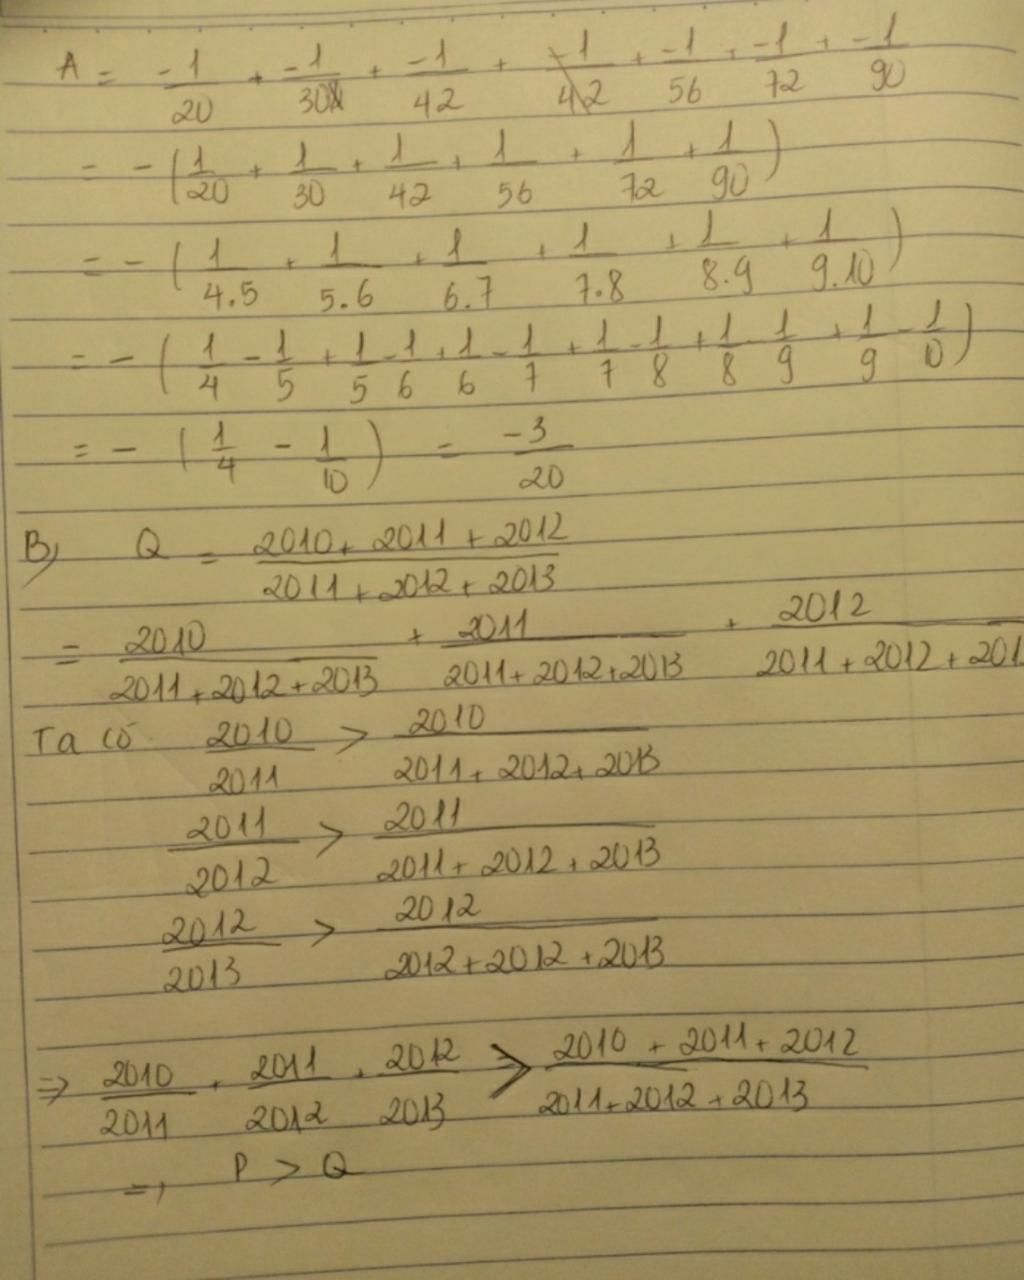 A = -1/20 + -1/30 + -1/42 + -1/42 + -1/56 + -1/72 + -1/90
= - (1/20 + 1/30 + 1/42 + 1/56 + 1/72 + 1/90)
= - (1/4.5 + 1/5.6 + 1/6.7 + 1/7.8 + 1/8.9 + 1/9.10)
= - (1/4 - 1/5 + 1/5 - 1/6 + 1/6 - 1/7 + 1/7 - 1/8 + 1/8 - 1/9 + 1/9 - 1/10)
= - (1/4 - 1/10) = -3/20
B, Q = 2010 + 2011 + 2012 / 2011 + 2012 + 2013
= 2010 / 2011 + 2012 + 2013 + 2011 / 2011 + 2012 + 2013 + 2012 / 2011 + 2012 + 201
Ta có 2010/2011 > 2010 / 2011 + 2012 + 2013
2011/2012 > 2011 / 2011 + 2012 + 2013
2012/2013 > 2012 / 2012 + 2012 + 2013
=> 2010/2011 + 2011/2012 + 2012/2013 > 2010 + 2011 + 2012 / 2011 + 2012 + 2013
=> P > Q